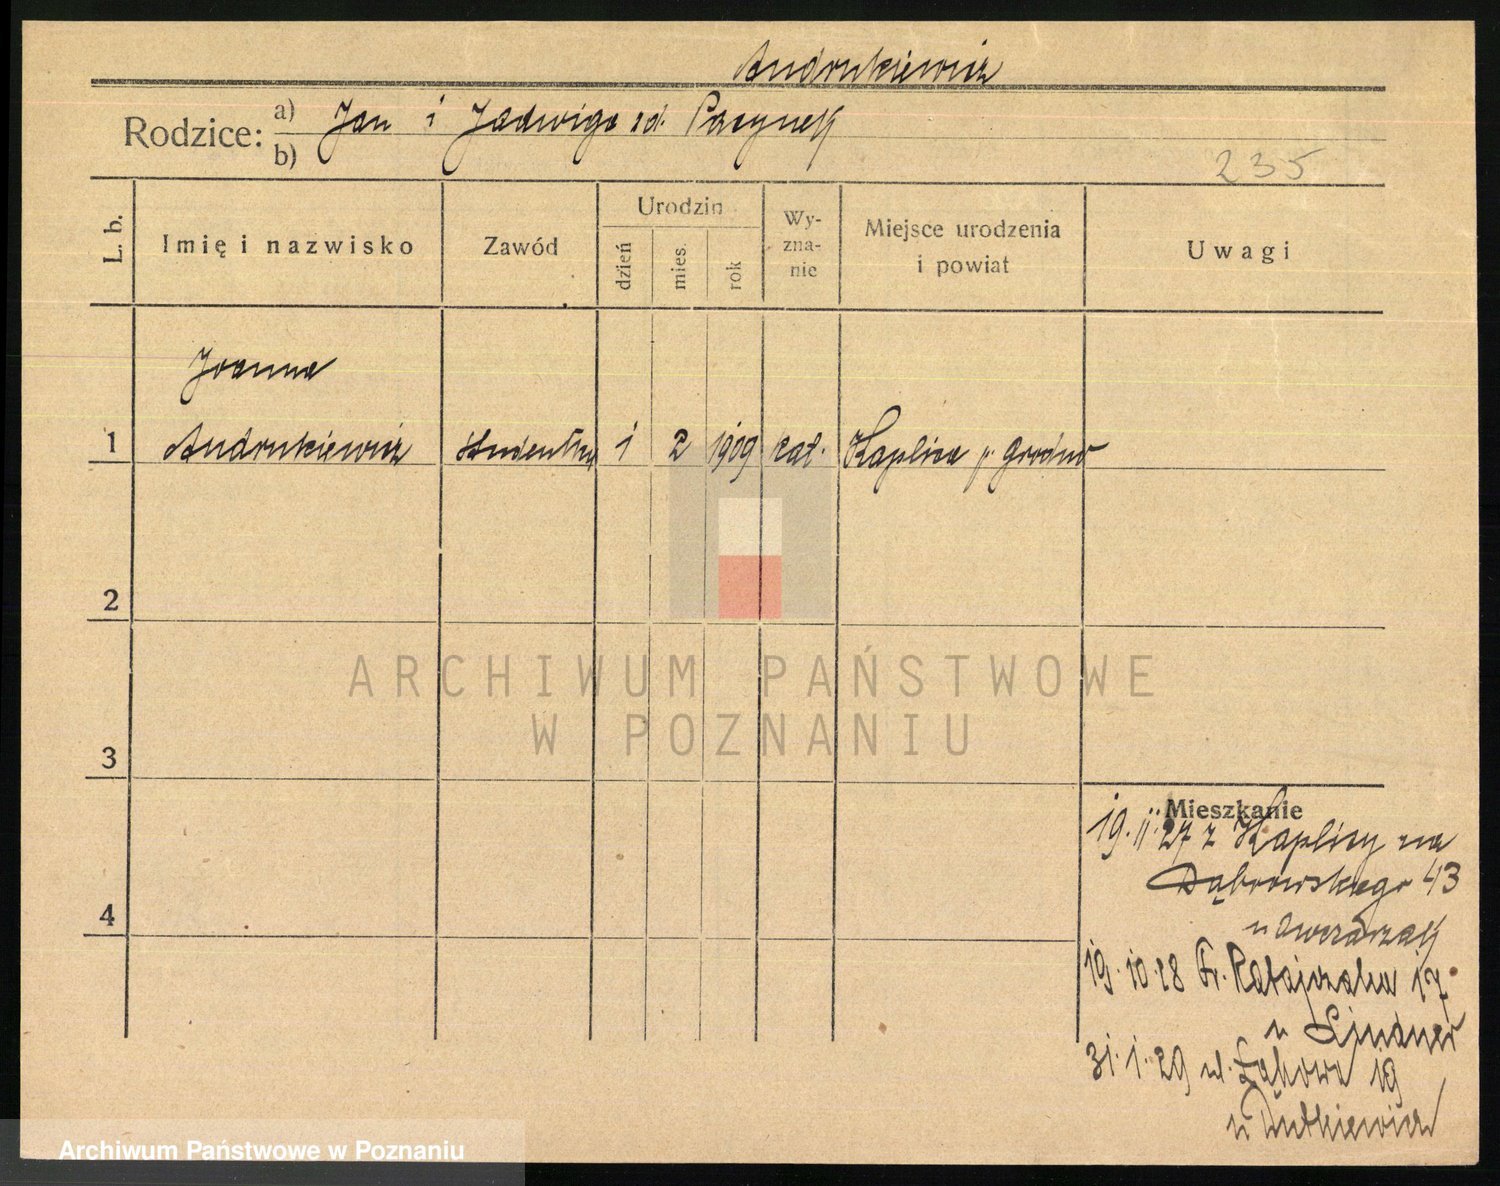 Andrukiewicz
Rodzice: a) Jan i Jadwiga zd. Pacynek
b)
235
L. b.
Imię i nazwisko
Zawód
Urodzin
dzień
mies.
rok
Wy-
zna-
nie
Miejsce urodzenia
i powiat
Uwagi
Joanna
1 Andrukiewicz studentka 1 2 1909 kat. Kaplica p. Grodno
2
3
4
ARCHIWUM PAŃSTWOWE
W POZNANIU
Mieszkanie
19.11.27 z Kaplicy na
Dąbrowskiego 43
u Owczarzak
19.10.28 Fr. Ratajczaka 17
u Lindner
31.1.29 ul. Łąkowa 19
u Dutkiewicz
Archiwum Państwowe w Poznaniu